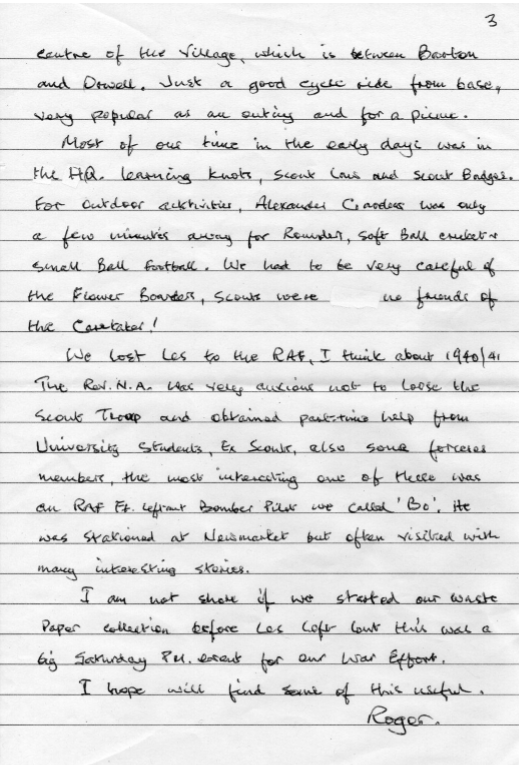 3
centre of the Village, which is between Barton
and Orwell. Just a good cycle ride from base,
very popular as an outing and for a picnic.
Most of our time in the early days was in
the HQ. learning knots, Scout Laws and Scout Badges.
For outdoor activities, Alexander Gardens was only
a few minutes away for Rounders, soft Ball cricket &
small Ball football. We had to be very careful of
the Flower Boarders, Scouts were no friends of
the Caretaker!
We lost Les to the RAF, I think about 1940/41
The Rev. N.A. was very anxious not to loose the
Scout Troop and obtained part-time help from
University Students, Ex Scouts, also some forces
members, the most interesting one of these was
an RAF Ft. Leftnant Bomber Pilot we called 'Bo'. He
was stationed at Newmarket but often visited with
many interesting stories.
I am not shore if we started our waste
Paper collection before Les left but this was a
big Saturday P.M. event for our War Effort.
I hope will find some of this useful.
Roger.